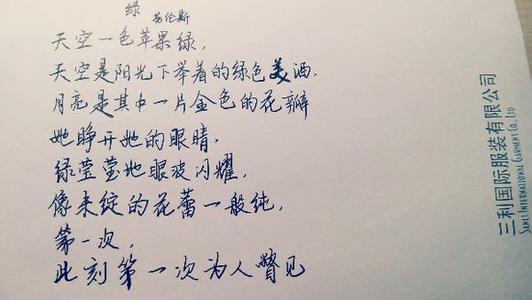 绿
劳伦斯
天空一色苹果绿,
天空是阳光下举着的绿色美酒.
月亮是其中一片金色的花瓣
她睁开她的眼睛.
绿莹莹地眼波闪耀.
像未绽的花蕾一般纯.
第一次,
此刻第一次为人瞥见
三利国际服装有限公司
SANLI INTERNATIONAL GARMENT CO., LTD